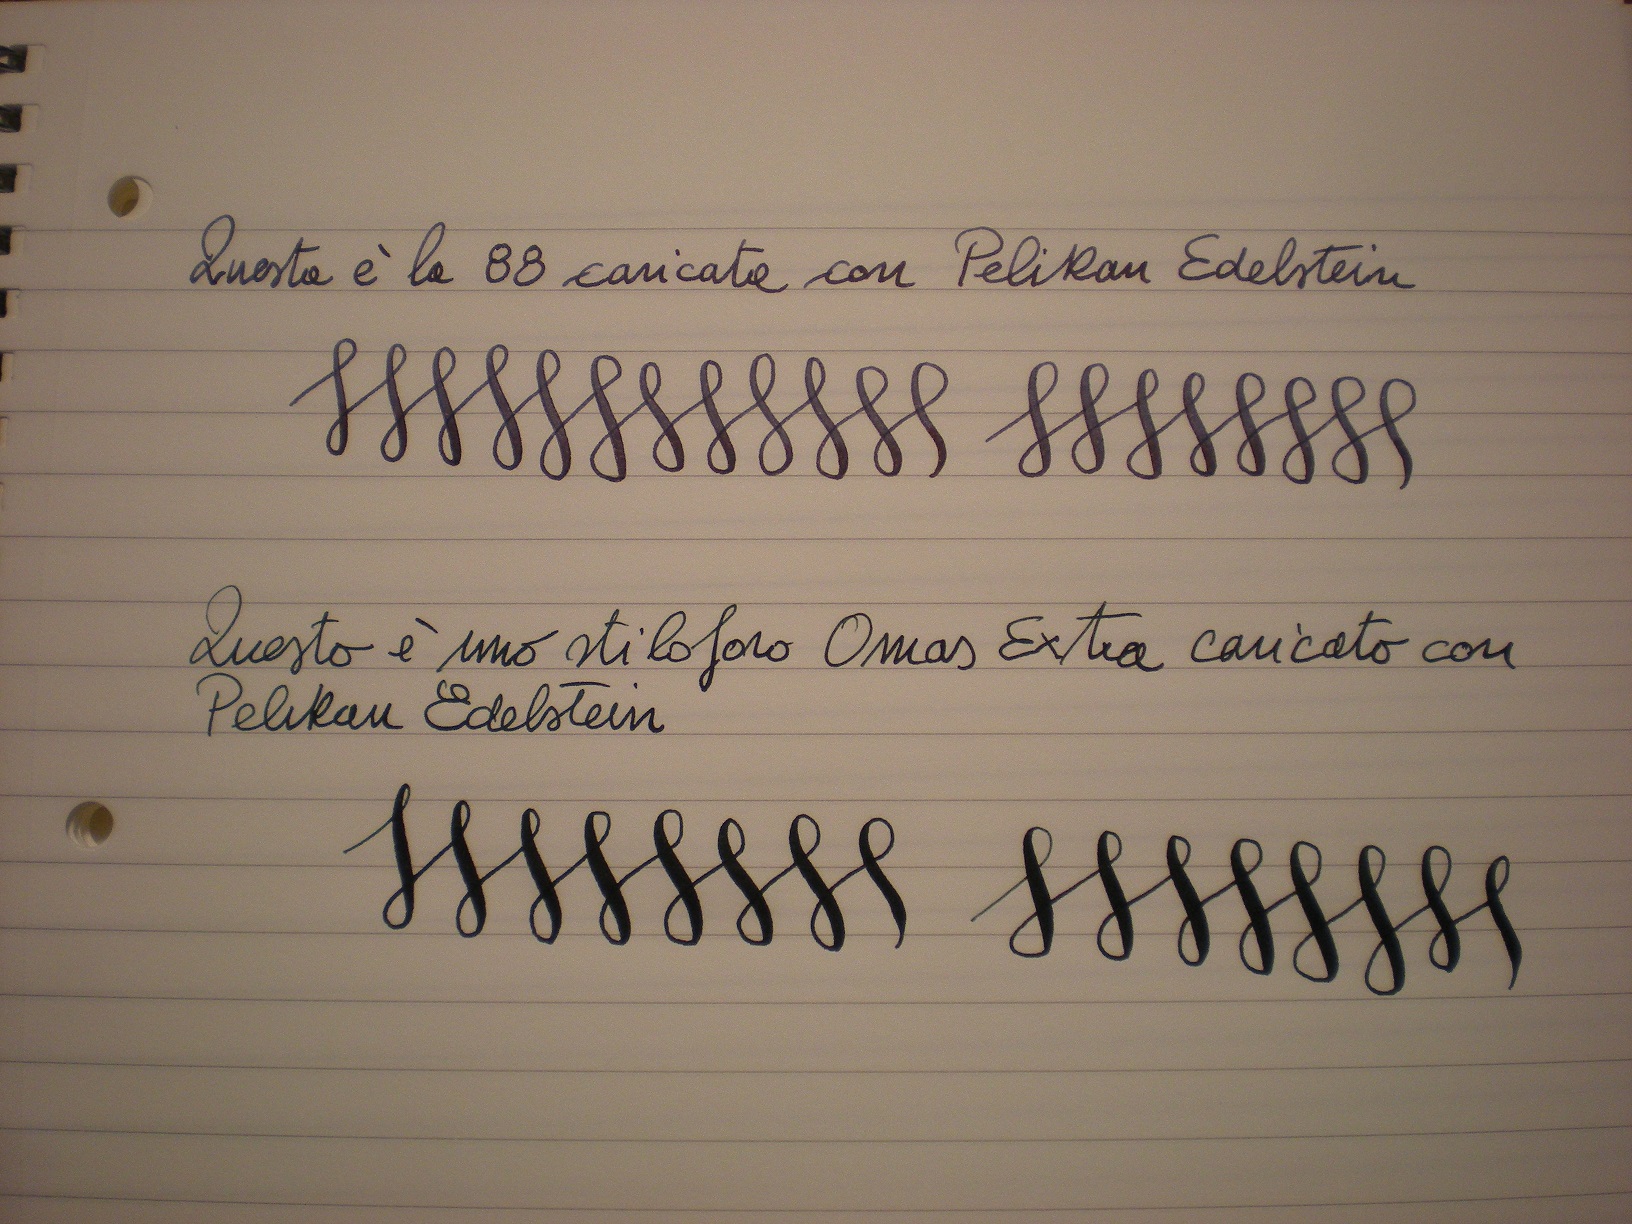 Questa è la 88 caricata con Pelikan Edelstein
Questo è uno stiloforo Omas Extra caricato con
Pelikan Edelstein